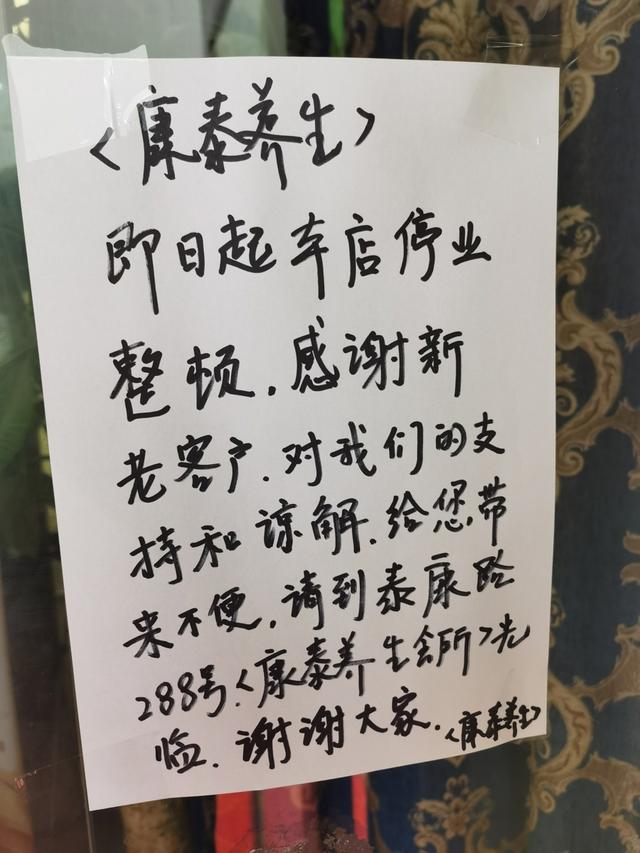 <康泰养生>
即日起本店停业
整顿.感谢新
老客户.对我们的支
持和谅解.给您带
来不便.请到泰康路
288号.<康泰养生会所>光
临.谢谢大家.<康泰养生>